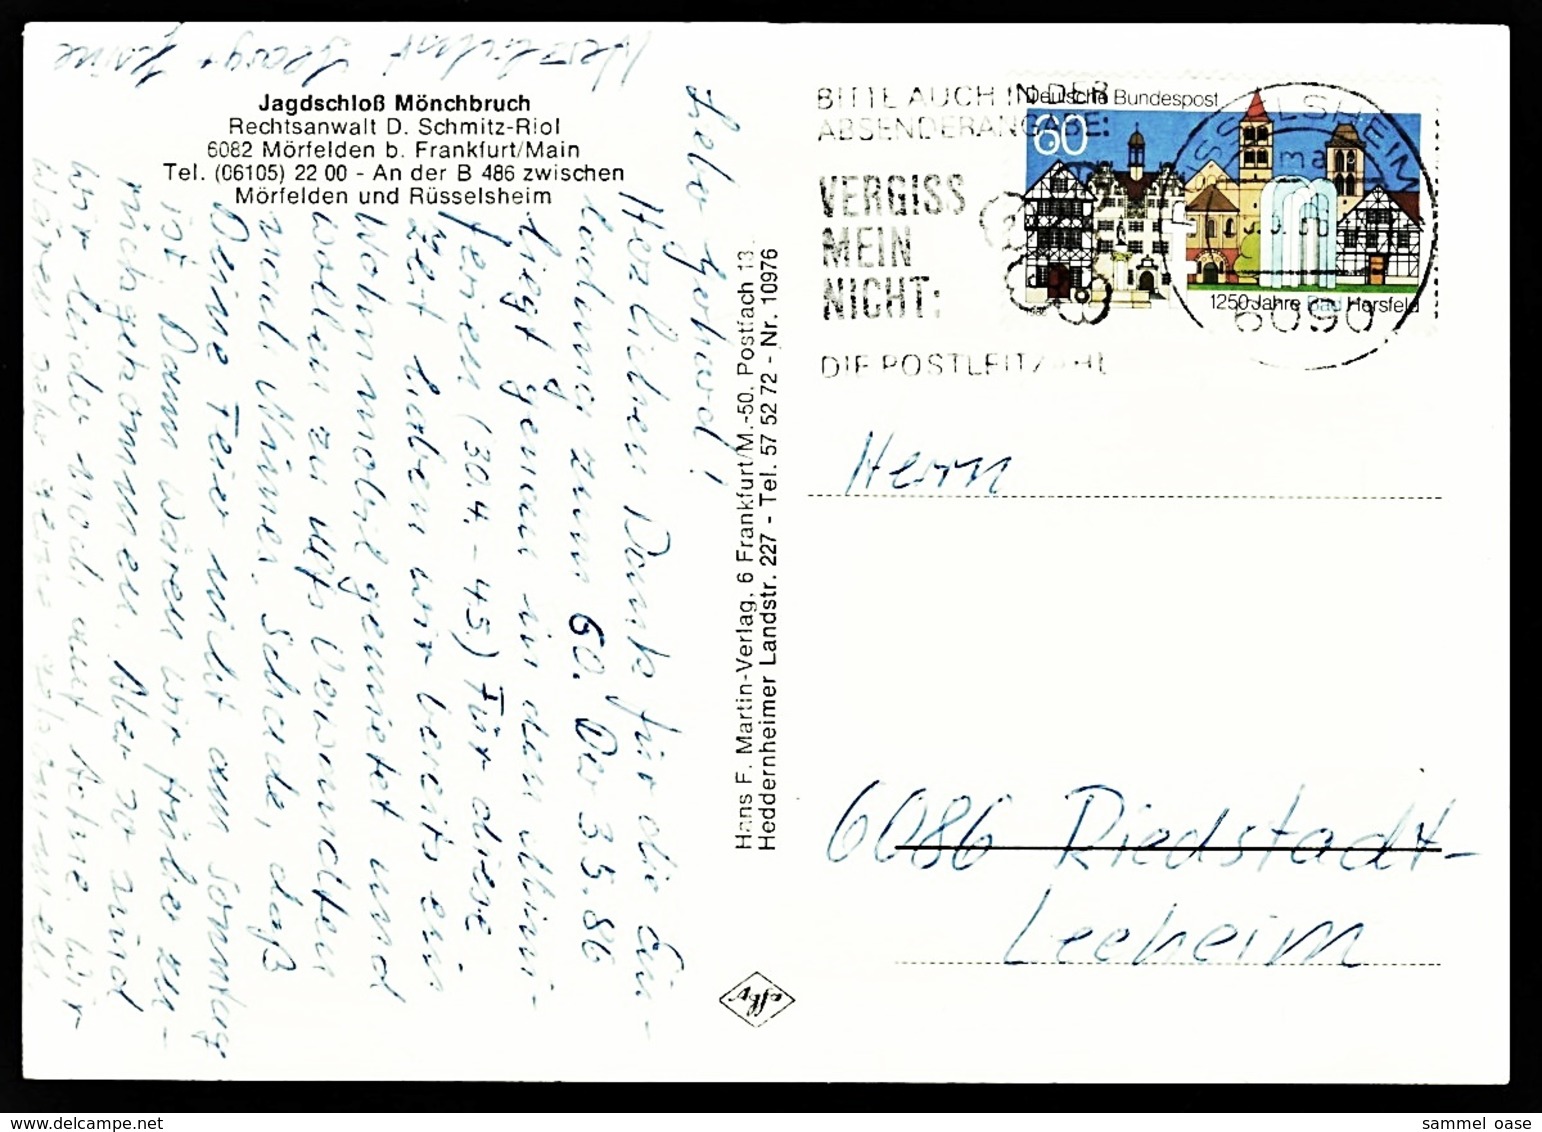 Jagdschloß Mönchbruch
Rechtsanwalt D. Schmitz-Riol
6082 Mörfelden b. Frankfurt/Main
Tel. (06105) 22 00 - An der B 486 zwischen
Mörfelden und Rüsselsheim
Lieber Gerhard!
Herzlichen Dank für die Ein-
ladung zum 60. Der 3.5.86
liegt genau in den Mini-
ferien (30.4. - 4.5.) Für diese
Zeit haben wir bereits ein
Wohnmobil gemietet und
wollen zu Verwandten
nach
Schade, daß
Deine Feier nicht am Sonntag
ist Dann wären wir früher zu-
rückgekommen. Aber so sind
wir leider noch auf Achse. Wir
wären sehr gerne gekommen.
Herzlichst Georg +
Hans F. Martin-Verlag, 6 Frankfurt/M.-50, Postfach 13
Heddernheimer Landstr. 227 - Tel. 57 52 72 - Nr. 10976
Agfa
BITTE AUCH IN DER
ABSENDERANGABE:
VERGISS
MEIN
NICHT:
DIE POSTLEITZAHL
Deutsche Bundespost
60
1250 Jahre Bad Hersfeld
SSELSHEIM
6090
Herrn
6086 Riedstadt-
Leeheim
sammel oase